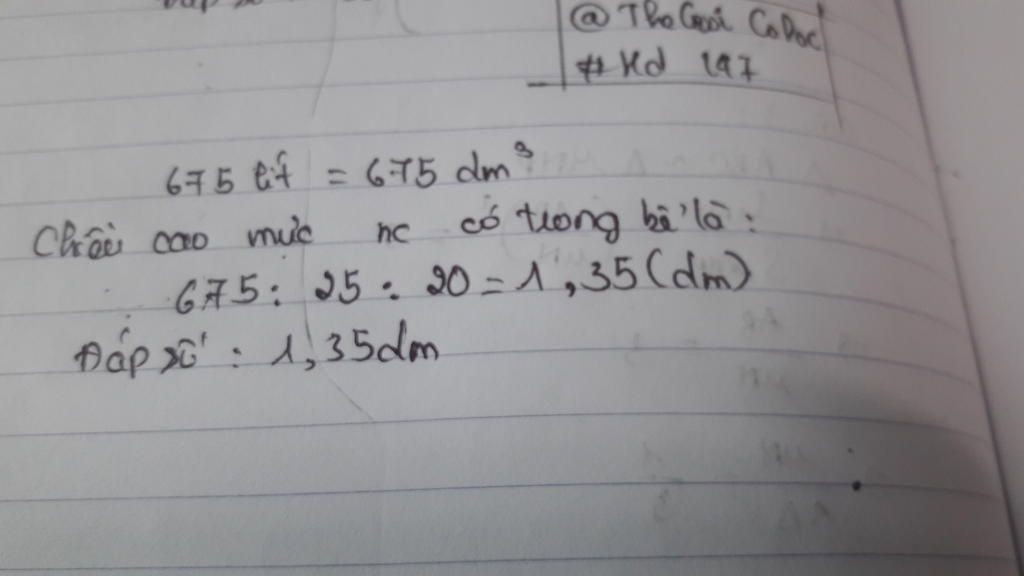 Đáp số
@ ThoGori CoDoc
# Hd 197
675 lít = 675 dm³
Chiều cao mực nc có trong bể là:
675 : 25 : 20 = 1,35 (dm)
Đáp số : 1,35dm